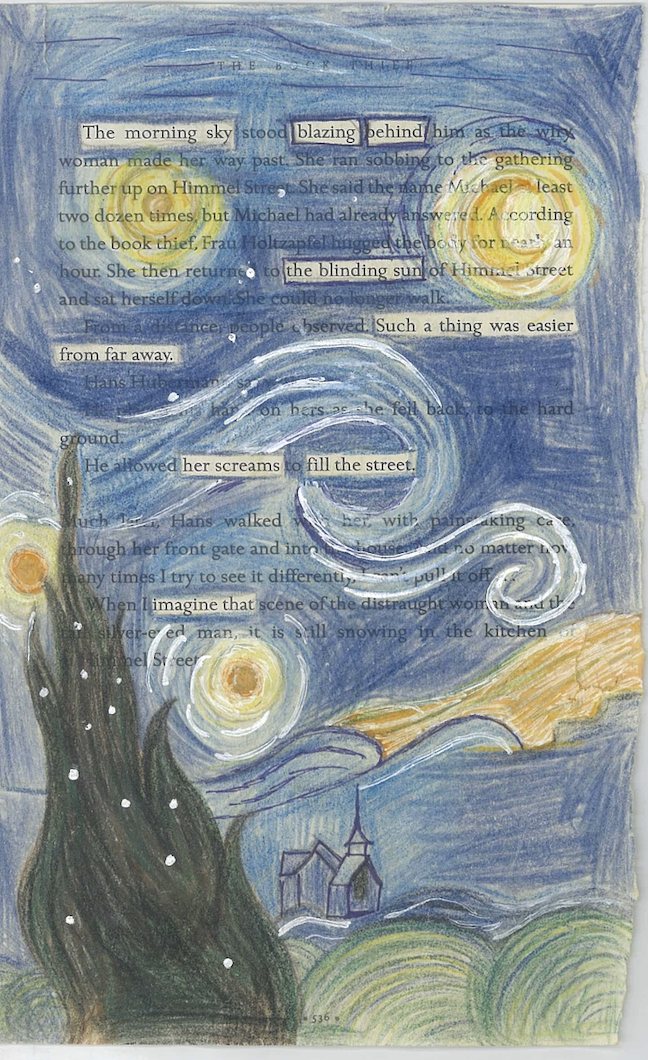 THE BOOK THIEF
The morning sky stood blazing behind him as the wiry
woman made her way past. She ran sobbing to the gathering
further up on Himmel Street. She said the name Michael at least
two dozen times, but Michael had already answered. According
to the book thief, Frau Holtzapfel hugged the body for nearly an
hour. She then returned to the blinding sun of Himmel Street
and sat herself down. She could no longer walk.
From a distance, people observed. Such a thing was easier
from far away.
Hans Hubermann sa
He hand on hers as she fell back to the hard
ground.
He allowed her screams to fill the street.
Much later, Hans walked with her, with painstaking care,
through her front gate and into house. And no matter how
many times I try to see it differently, I can't pull it off . . .
When I imagine that scene of the distraught woman and the
silver-eyed man, it is still snowing in the kitchen of
Himmel Street.
536